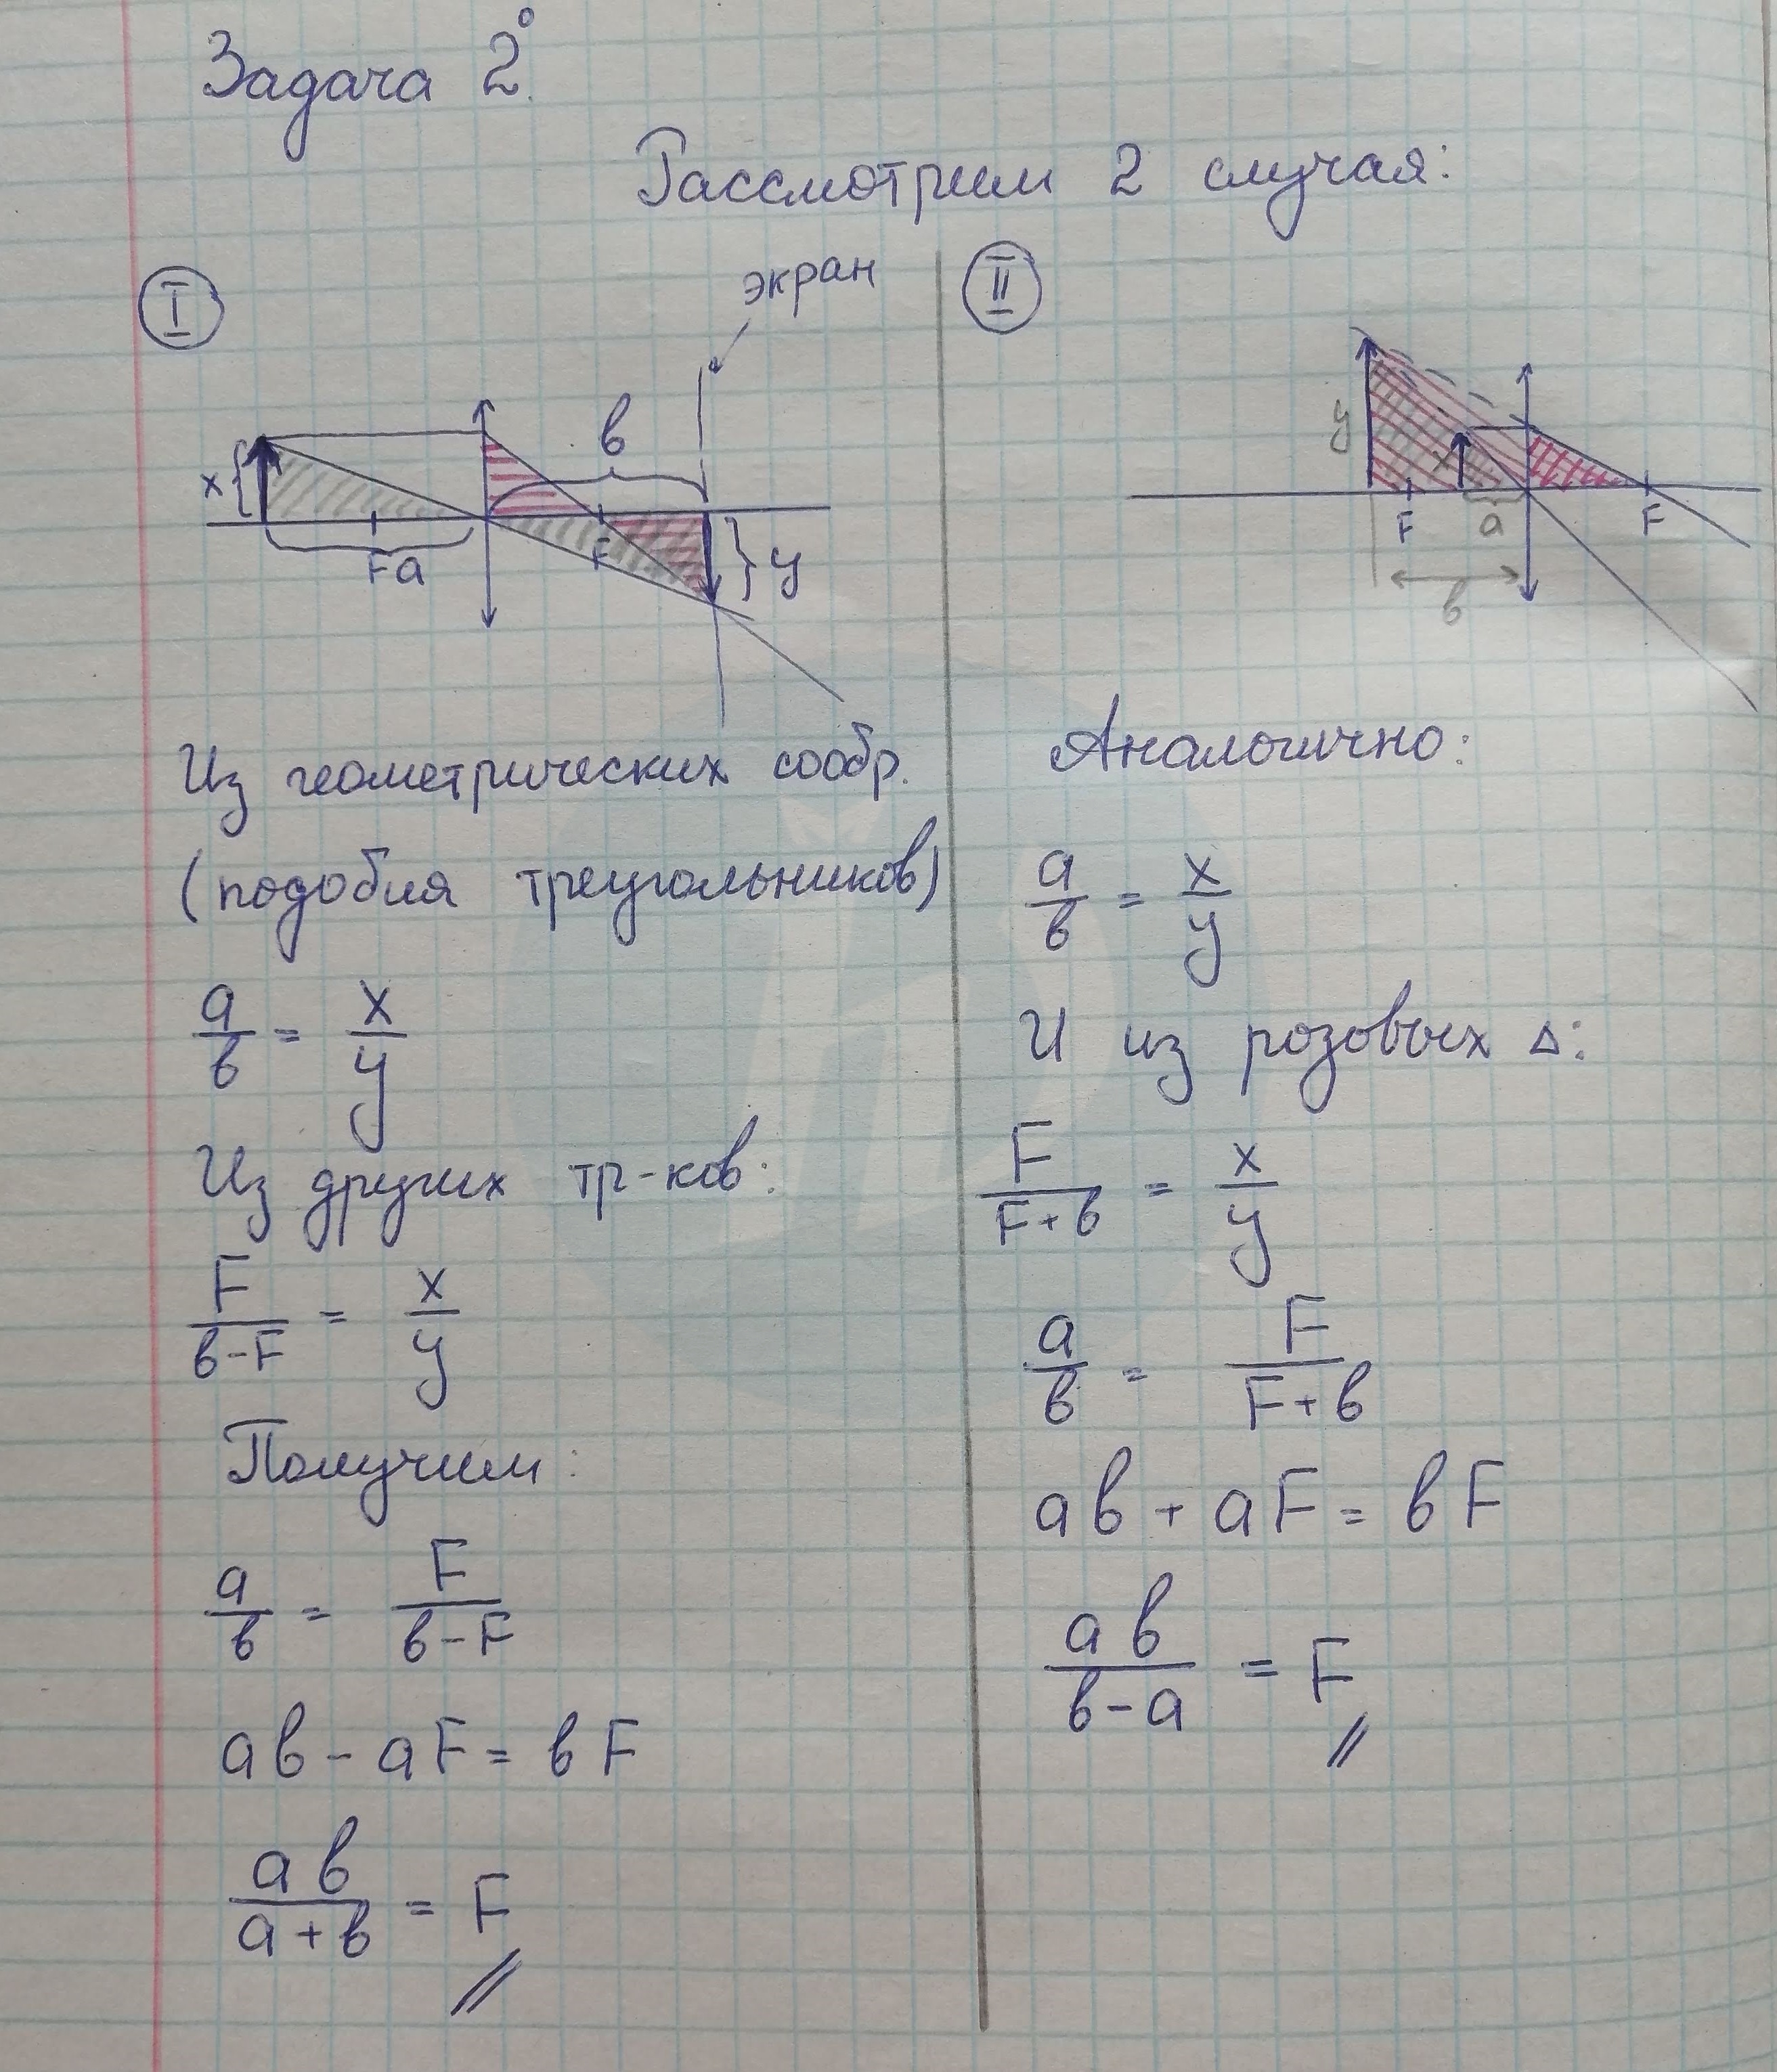 Задача 2°.
Рассмотрим 2 случая:
I
экран
x
F
a
b
F
y
Из геометрических сообр.
(подобия треугольников)
a/b = x/y
Из других тр-ков:
F/(b-F) = x/y
Получим:
a/b = F/(b-F)
ab - aF = bF
ab/(a+b) = F
II
y
x
F
a
F
b
Аналогично:
a/b = x/y
И из розовых Δ:
F/(F+b) = x/y
a/b = F/(F+b)
ab + aF = bF
ab/(b-a) = F